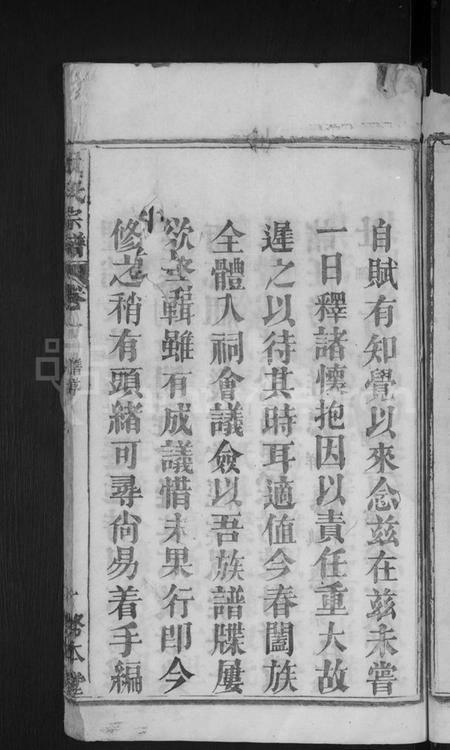 自賦有知覺以來念茲在兹未嘗
一日釋諸懷抱因以責任重大故
遲之以待其時耳適值今春闔族
全體入祠會議僉以吾族譜牒屢
欲纂輯雖有成議惜未果行即今
修之稍有頭緒可尋尙易着手編
氏宗譜
卷
本堂